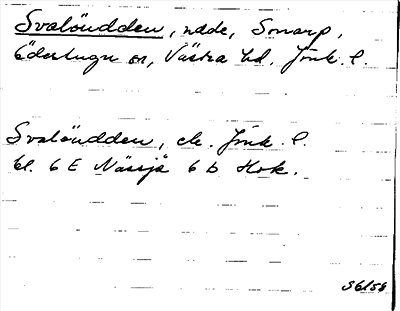 Svalöudden, udde, Smarp,
Ödestugu sn, Västra hd, Jönk. l.
Svalöudden, ek. Jönk l.
bl. 6 E Nässjö 6 b Hok.
36158